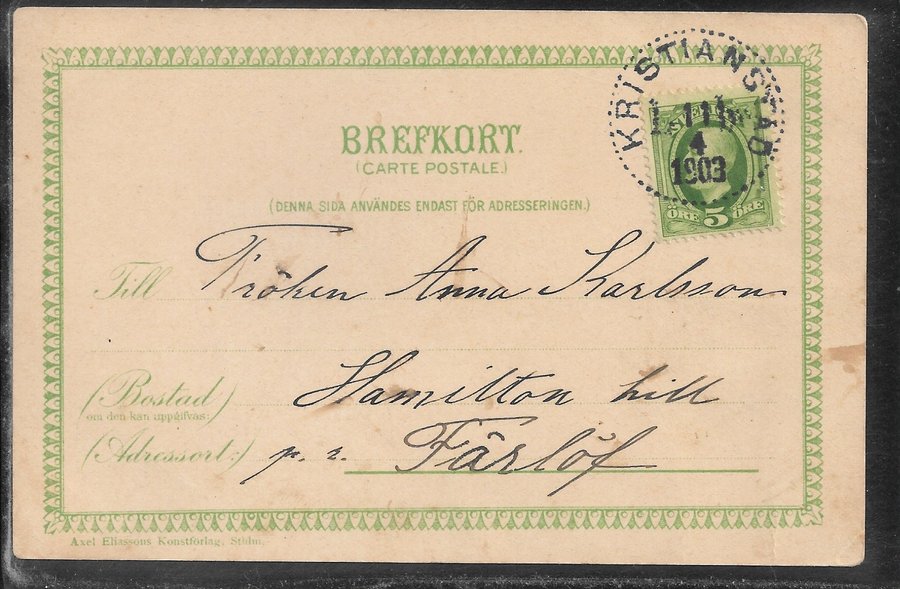 BREFKORT.
(CARTE POSTALE.)
(DENNA SIDA ANVÄNDES ENDAST FÖR ADRESSERINGEN.)
KRISTIANSTAD
4
1903
SVERIGE
ÖRE 5 ÖRE
Till Fröken Anna Karlsson
(Bostad)
om den kan uppgifvas:
Hamilton hill
(Adressort:) p. r. Färlöf
Axel Eliassons Konstförlag, Sthlm.